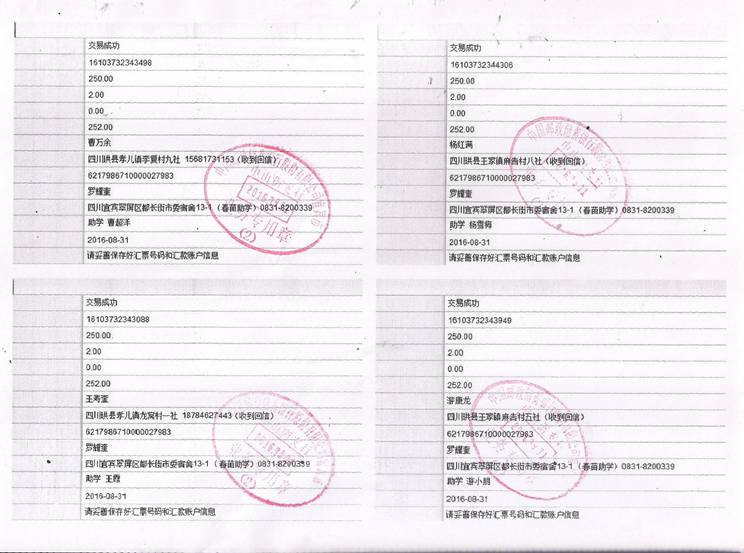 交易成功
16103732343498
250.00
2.00
0.00
252.00
曹万余
四川珙县孝儿镇李贾村九社 15681731153（收到回信）
6217986710000027983
罗耀奎
四川宜宾翠屏区都长街市委宿舍13-1（春苗助学）0831-8200339
助学 曹超洋
2016-08-31
请妥善保存好汇票号码和汇款账户信息
交易成功
16103732344306
250.00
2.00
0.00
252.00
杨红满
四川珙县王家镇麻吉村八社（收到回信）
6217986710000027983
罗耀奎
四川宜宾翠屏区都长街市委宿舍13-1（春苗助学）0831-8200339
助学 杨雪梅
2016-08-31
请妥善保存好汇票号码和汇款账户信息
交易成功
16103732343088
250.00
2.00
0.00
252.00
王寿奎
四川珙县孝儿镇龙窝村一社 18784627443（收到回信）
6217986710000027983
罗耀奎
四川宜宾翠屏区都长街市委宿舍13-1（春苗助学）0831-8200339
助学 王霞
2016-08-31
请妥善保存好汇票号码和汇款账户信息
交易成功
16103732343949
250.00
2.00
0.00
252.00
游康龙
四川珙县王家镇麻吉村五社（收到回信）
6217986710000027983
罗耀奎
四川宜宾翠屏区都长街市委宿舍13-1（春苗助学）0831-8200339
助学 游小朋
2016-08-31
请妥善保存好汇票号码和汇款账户信息